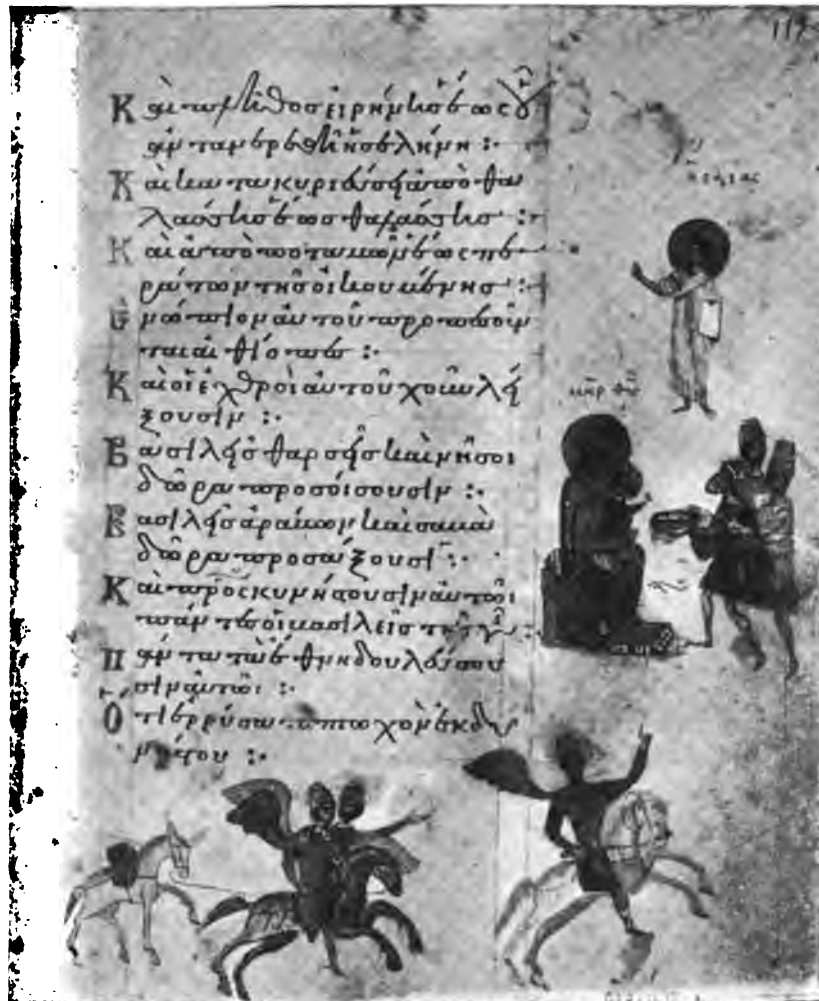 117
Καὶ πλῆθος εἰρήνης ἕως οὗ
ἀνταναιρεθῆι ἡ σελήνη :·
Καὶ κατακυριεύσει ἀπὸ θα
λάσσης ἕως θαλάσσης :·
Καὶ ἀπὸ ποταμῶν ἕως πε
ράτων τῆς οἰκουμένης :·
Ἐνώπιον αὐτοῦ προπεσοῦν
ται αἰθίοπες :·
Καὶ οἱ ἐχθροὶ αὐτοῦ χοῦν λεί
ξουσιν :·
Βασιλεῖς θαρσεῖς καὶ νῆσοι
δῶρα προσοίσουσιν :·
Βασιλεῖς ἀράβων καὶ σαβὰ
δῶρα προσάξουσι :·
Καὶ προσκυνήσουσιν αὐτῶι
πάντες οἱ βασιλεῖς τῆς γῆς :·
Πάντα τὰ ἔθνη δουλεύσου
σιν αὐτῶι :·
Ὅτι ἐρρύσατο πτωχὸν ἐκ δυ
νάστου :·
ἡσαΐας
μηρ θυ